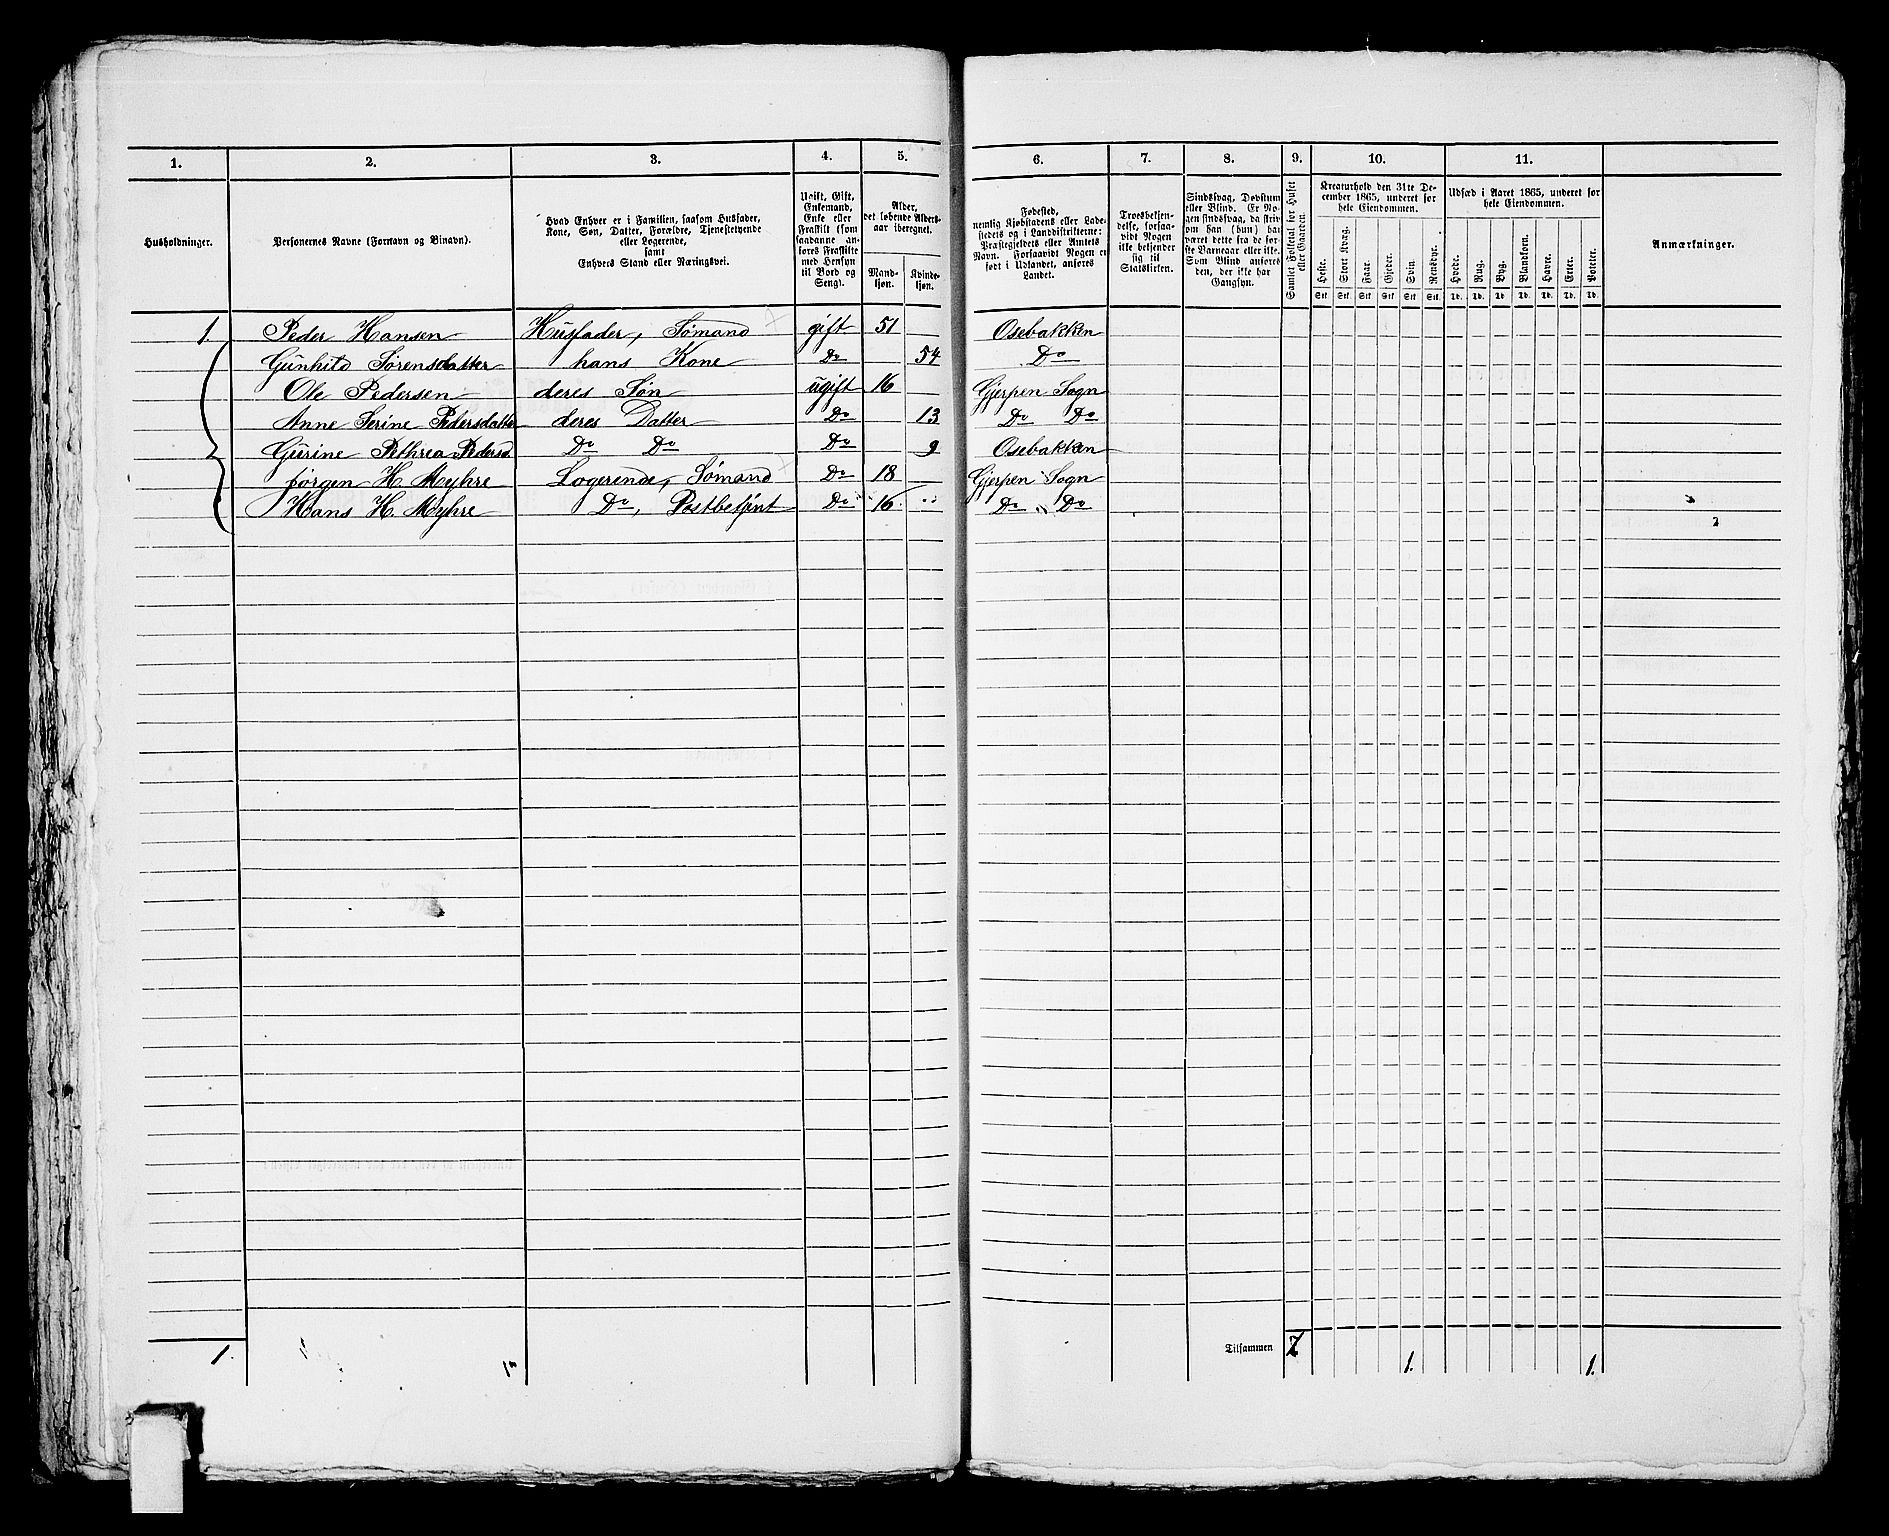 1. 2. 3. 4. 5. 6. 7. 8. 9. 10. 11.
Husholdninger.
Personernes Navne (Fornavn og Binavn).
Hvad Enhver er i Familien, saasom Husfader,
Kone, Søn, Datter, Forældre, Tjenestetyende
eller Logerende,
samt
Enhvers Stand eller Næringsvei.
Ugift, Gift,
Enkemand,
Enke eller
Fraskilt (som
saadanne anføres Fraskilte
med Hensyn
til Bord og
Seng).
Alder,
det løbende Alders-
aar iberegnet.
Mand-
kjøn.
Kvinde-
kjøn.
Fødested,
nemlig Kjøbstadens eller Lade-
stedets og i Landdistrikterne:
Præstegjeldets eller Amtets
Navn. Forsaavidt Nogen er
født i Udlandet, anføres
Landet.
Troesbekjen-
delse, forsaa-
vidt Nogen
ikke bekjender
sig til
Statskirken.
Sindssvag, Døvstum
eller Blind. Er No-
gen sindssvag, da skriv
om han (hun) har
været dette fra de før-
ste Barneaar eller ikke.
Som Blind anføres
den, der ikke har
Gangsyn.
Samlet Folketal for Huset
eller Gaarden.
Kreaturhold den 31te De-
cember 1865, underet for
hele Eiendommen.
Heste. Stort Kvæg. Faar. Gjeder. Svin. Rensdyr.
Stk. Stk. Stk. Stk. Stk. Stk.
Udsæd i Aaret 1865, underet for
hele Eiendommen.
Hvede. Rug. Byg. Blandkorn. Havre. Erter. Poteter.
Td. Td. Td. Td. Td. Td. Td.
Anmærkninger.
1. Peder Hansen Husfader, Sømand gift 51 Osebakken
Gunhild Sørensdatter hans Kone Do 54 Do
Ole Pedersen deres Søn ugift 16 Gjerpen Sogn
Anne Serine Pedersdatter deres Datter Do 13 Do Do
Gurine Pethrea Pedersd Do Do Do 9 Osebakken
Jørgen H Myhre Logerende, Sømand Do 18 Gjerpen Sogn
Hans H. Myhre Do, Postbetjent Do 16 Do Do
1. Tilsammen 7 1. 1.